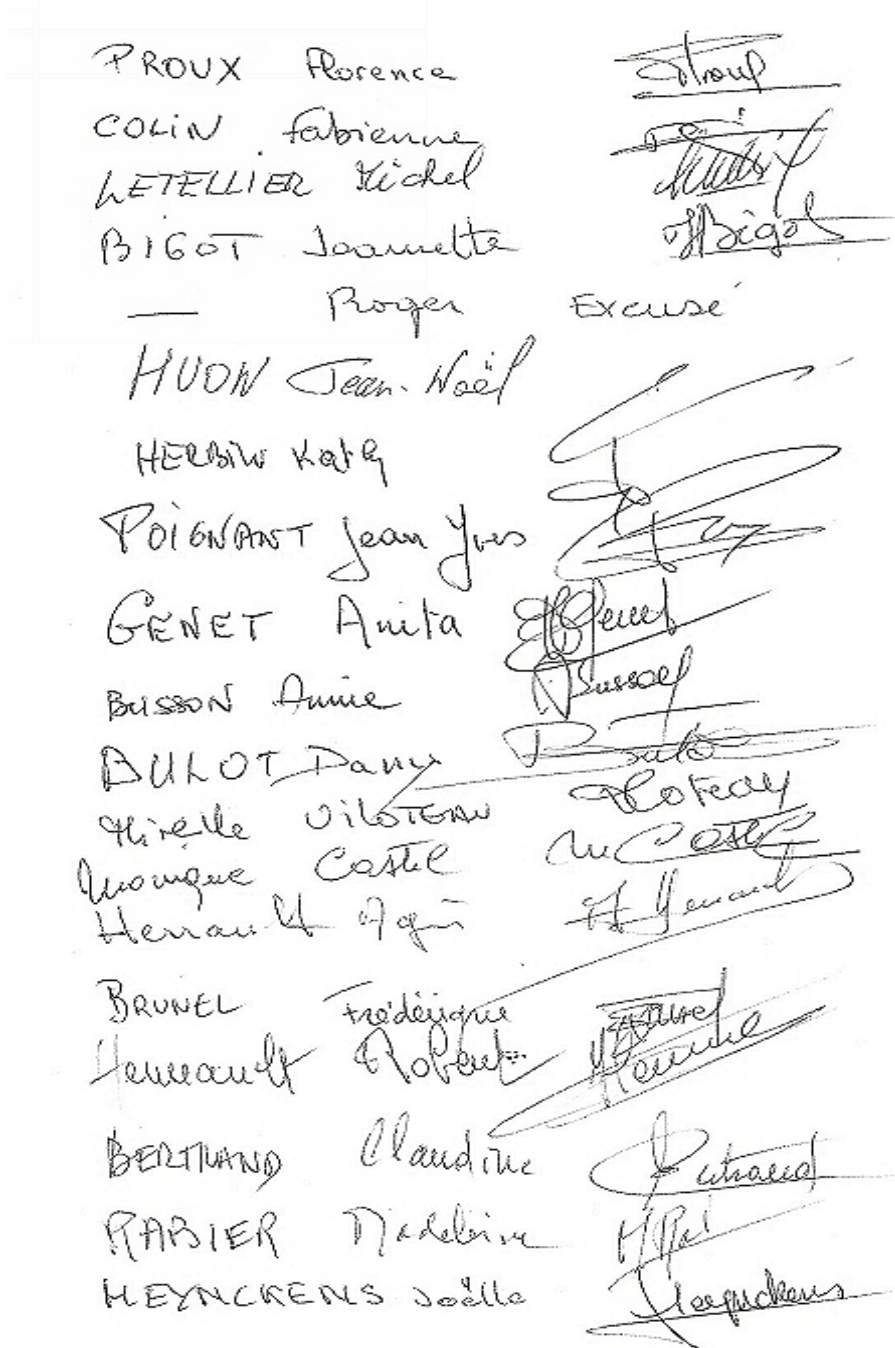 PROUX Florence Proux
COLIN Fabienne
LETELLIER Michel
BIGOT Jeannette JBigot
— Roger Excusé
HUON Jean-Noël
HERBIN Katy
POIGNANT Jean Yves
GENET Anita AGenet
BUSSON Annie ABusson
BULOT Dany Bulot
Mireille VILOTEAU
Monique Castel M Castel
Herrault Agnès
BRUNEL Frédérique Brunel
Robert
BERTRAND Claudine Bertrand
RABIER Madeleine
HEYNCKENS Joëlle Heynckens